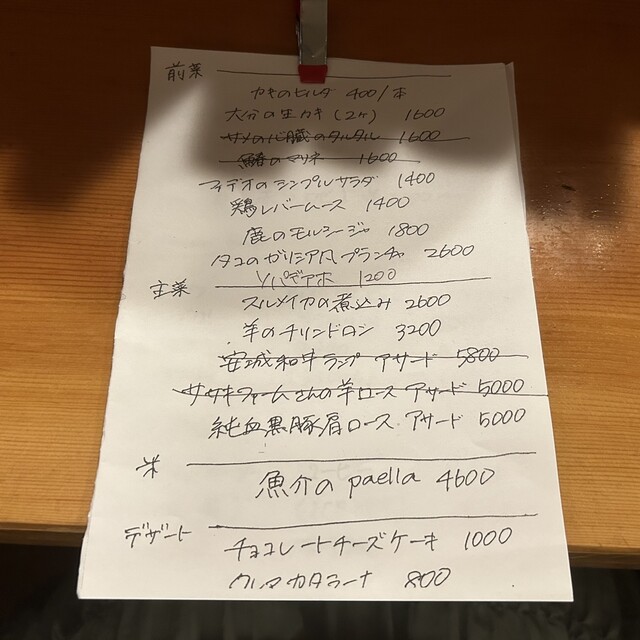 前菜
カキのヒルダ 400/本
大分の生カキ(2ヶ) 1600
サメの心臓のタルタル 1600
鰆のマリネ 1600
フィデオのシンプルサラダ 1400
鶏レバームース 1400
鹿のモルシージャ 1800
タコのガリシア風プランチャ 2600
ソパデアホ 1200
主菜
スルメイカの煮込み 2600
羊のチリンドロン 3200
安城和牛ランプ アサード 5800
ササキファームさんの羊ロース アサード 5000
純血黒豚肩ロース アサード 5000
米
魚介の paella 4600
デザート
チョコレートチーズケーキ 1000
クレマカタラーナ 800